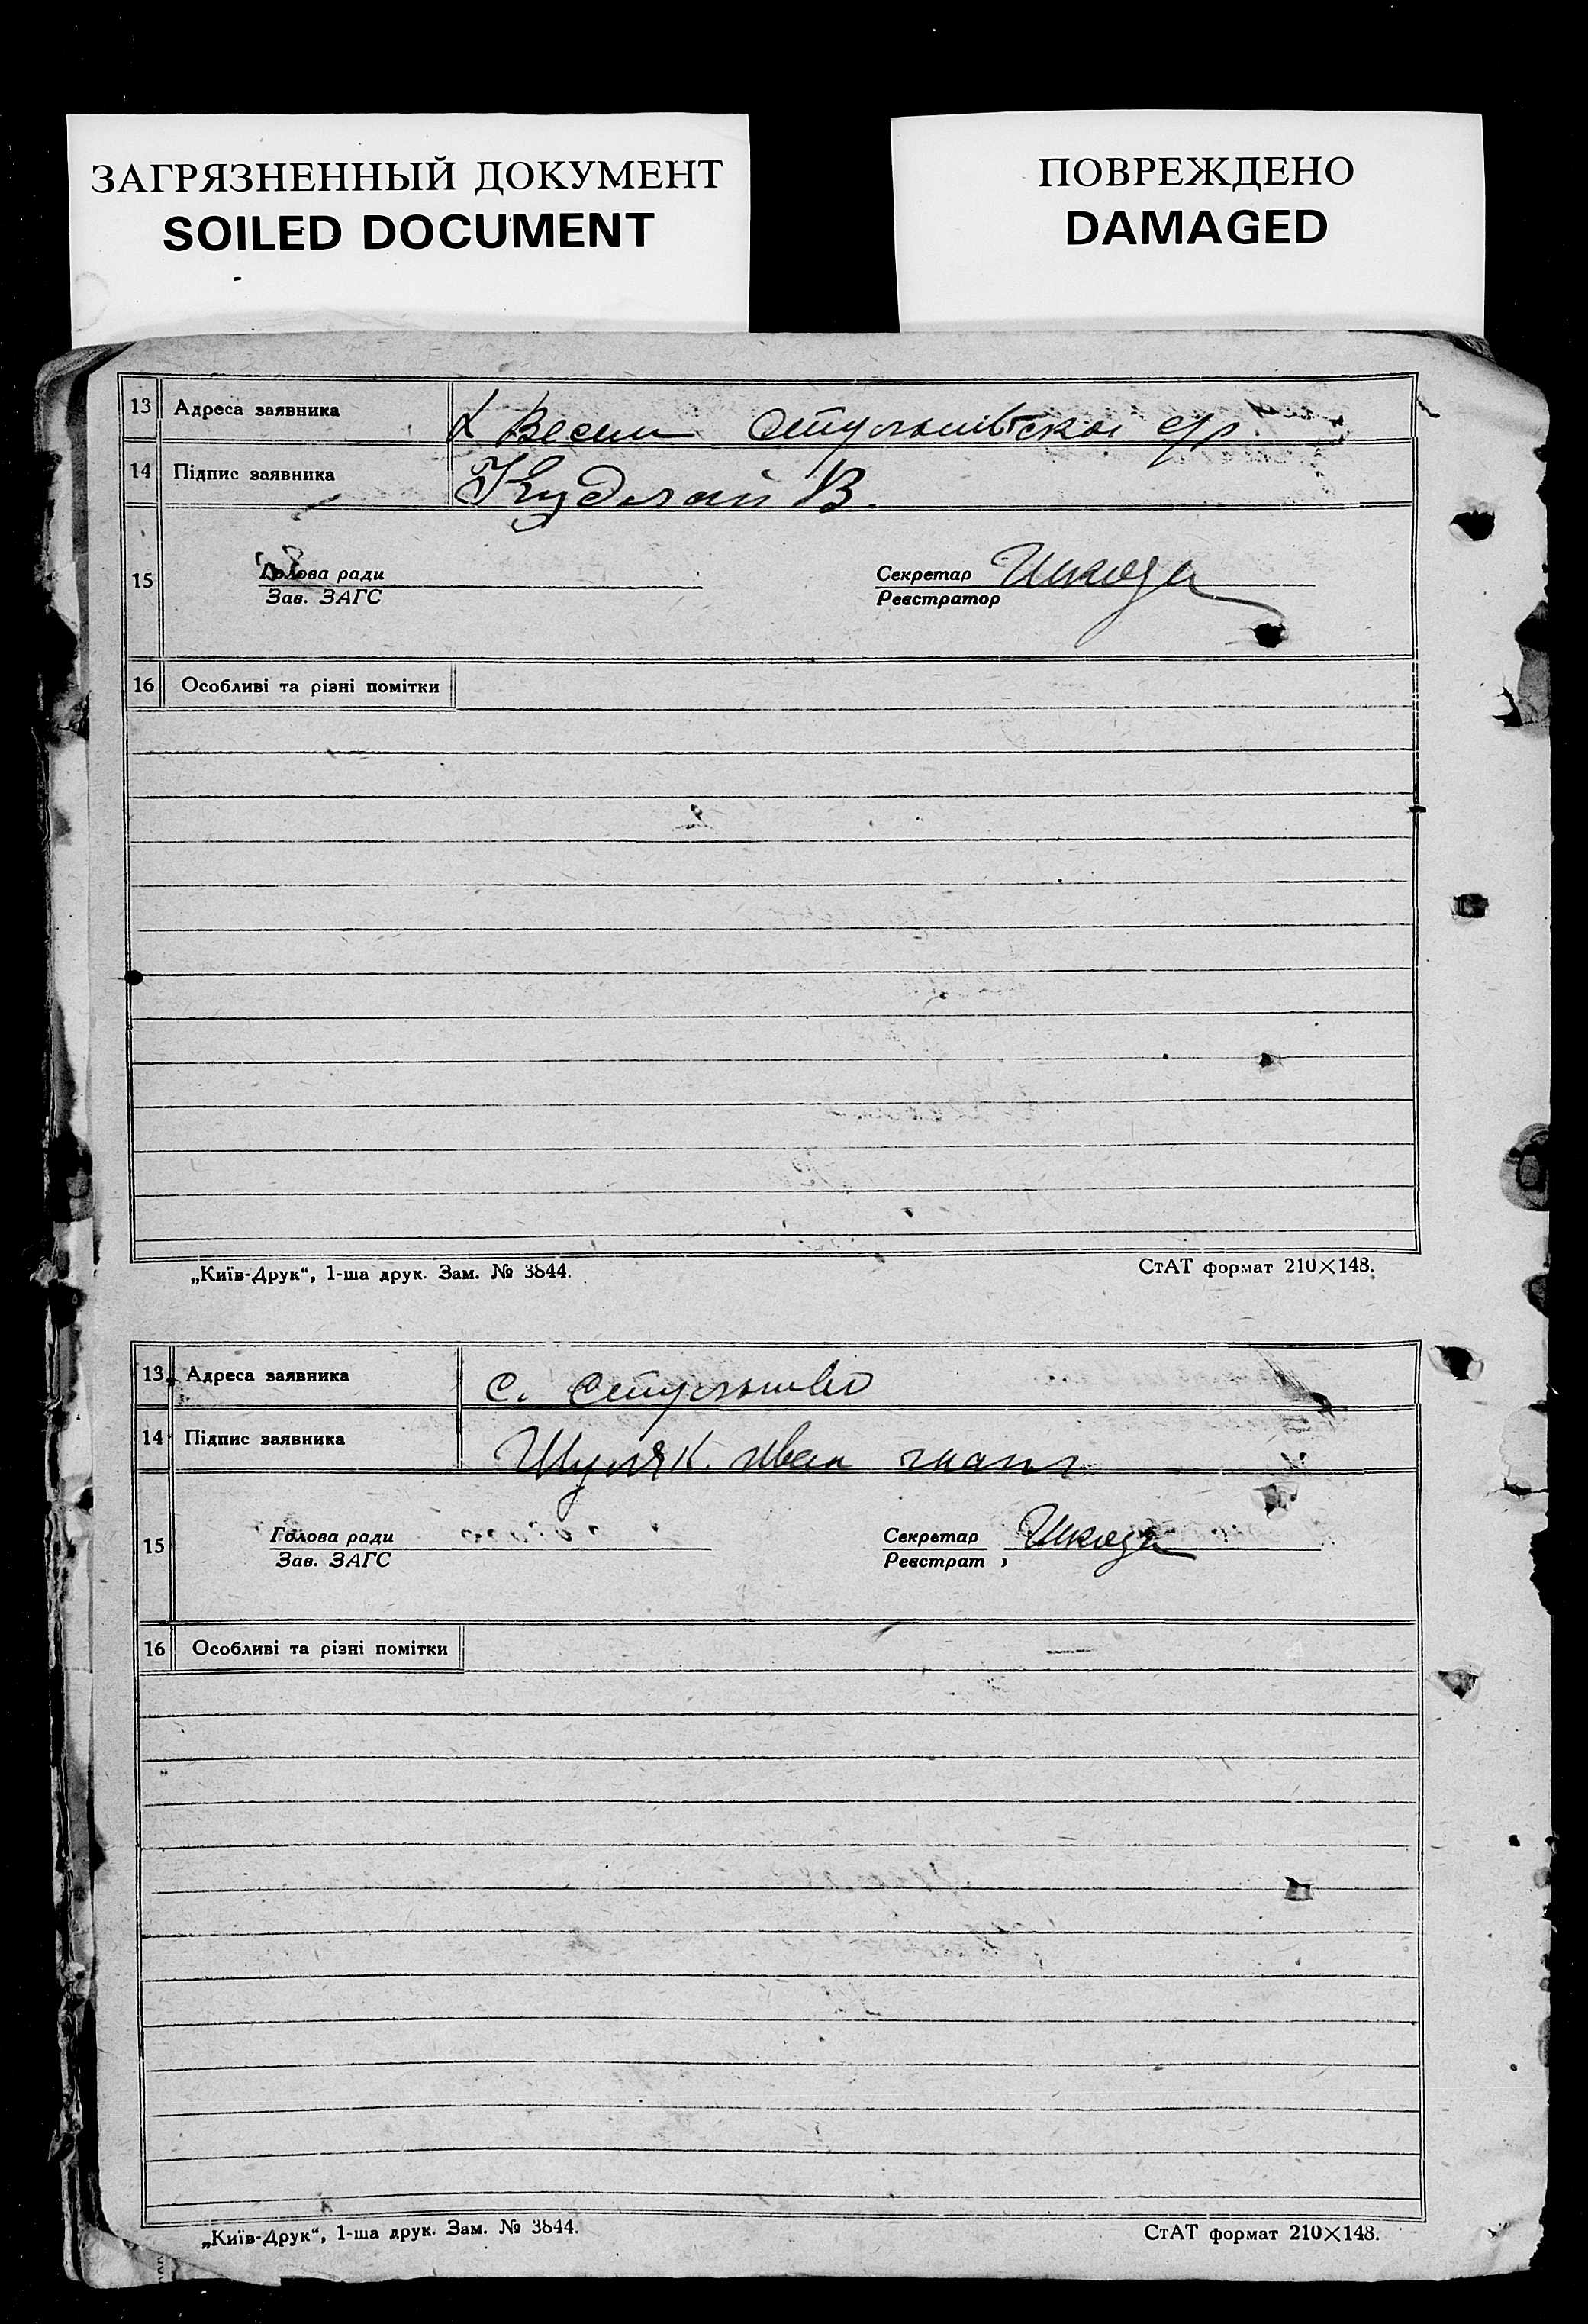 ЗАГРЯЗНЕННЫЙ ДОКУМЕНТ
SOILED DOCUMENT
ПОВРЕЖДЕНО
DAMAGED
13 Адреса заявника
14 Підпис заявника Кудлай В.
15 Голова ради
Зав. ЗАГС
Секретар Шкода
Реєстратор
16 Особливі та різні помітки
„Київ-Друк“, 1-ша друк. Зам. № 3844.
СтАТ формат 210×148.
13 Адреса заявника с.
14 Підпис заявника Шуляк Иван
15 Голова ради
Зав. ЗАГС
Секретар Шкода
Реєстрат
16 Особливі та різні помітки —
„Київ-Друк“, 1-ша друк. Зам. № 3844.
СтАТ формат 210×148.